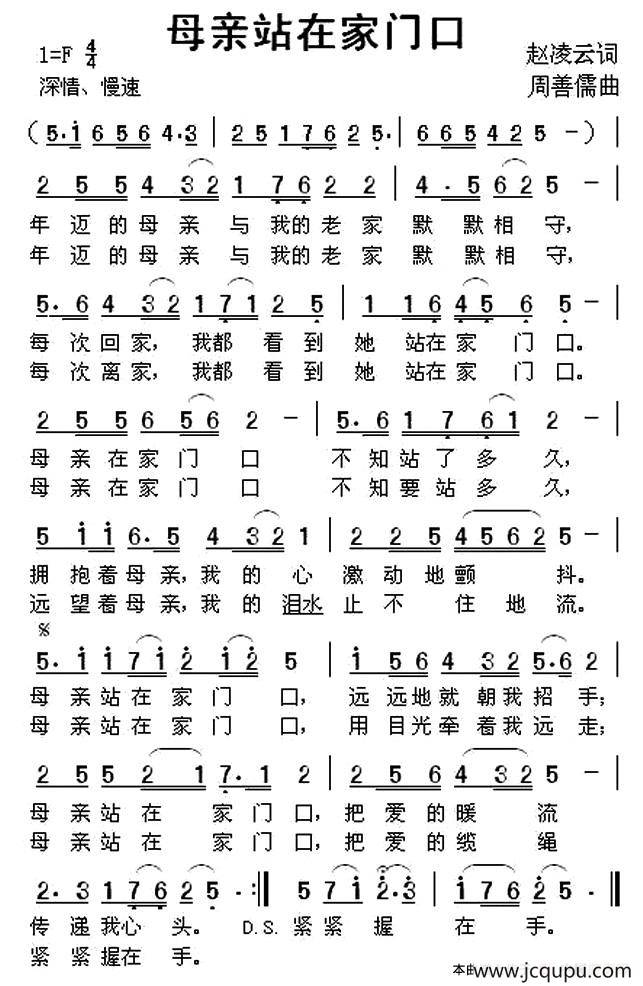 母亲站在家门口
1=F 4/4
赵凌云词
深情、慢速
周善儒曲
( 5·i 6 5 6 4·3 | 2 5 1 7 6 2 5· | 6 6 5 4 2 5 － ) |
2 5 5 4 3 2 1 7 6 2 2 | 4 · 5 6 2 5 － |
年迈的母亲与我的老家默默相守,
年迈的母亲与我的老家默默相守,
5· 6 4 3 2 1 7 1 2 5 | 1 1 6 4 5 6 5 － |
每次回家, 我都看到她站在家门口。
每次离家, 我都看到她站在家门口。
2 5 5 6 5 6 2 － | 5· 6 1 7 6 1 2 － |
母亲在家门口 不知站了多久,
母亲在家门口 不知要站多久,
5 i i 6· 5 4 3 2 1 | 2 2 5 4 5 6 2 5 － |
拥抱着母亲, 我的心激动地颤抖。
远望着母亲, 我的泪水止不住地流。
𝄋
5· i i 7 i 2 i 2 5 | i 5 6 4 3 2 5·6 2 |
母亲站在家门口, 远远地就朝我招手;
母亲站在家门口, 用目光牵着我远走;
2 5 5 2 1 7· 1 2 | 2 5 6 4 3 2 5 － |
母亲站在家门口, 把爱的暖流
母亲站在家门口, 把爱的缆绳
2· 3 1 7 6 2 5 · :‖ 5 7 i 2·3 | i 7 6 2 5 · ‖
传递我心头。 D.S. 紧紧握在手。
紧紧握在手。
本曲www.jcqupu.com